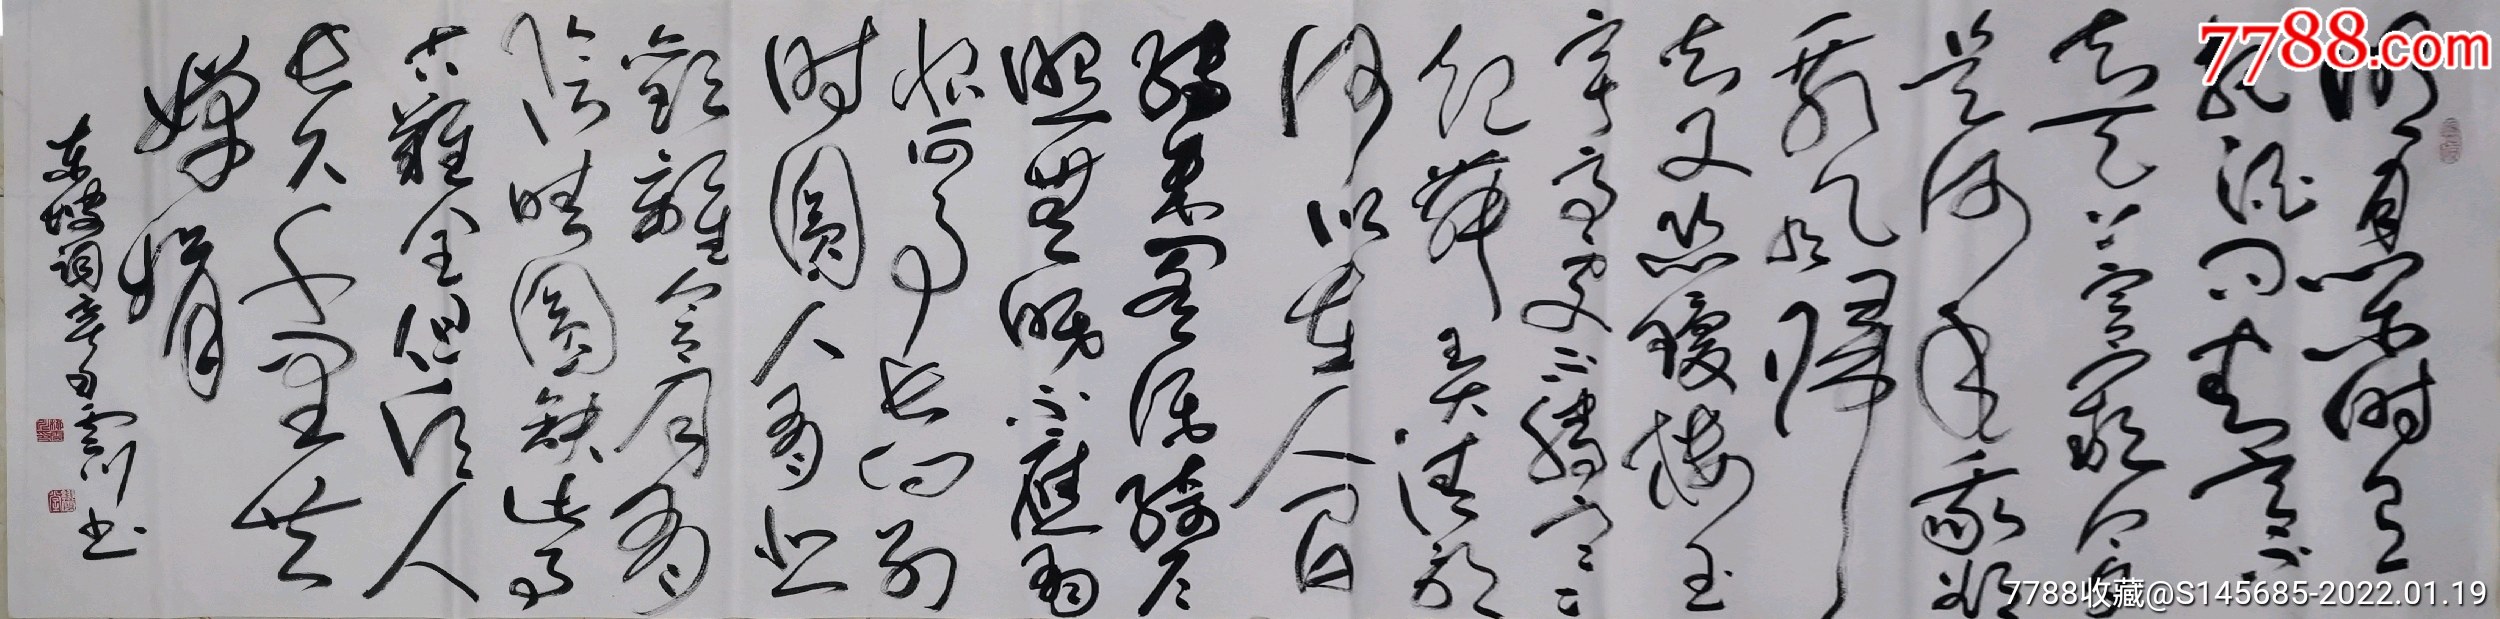 明月幾时有
把酒问青天不
知天上宫阙今夕
是何年我欲
乘风归
去又恐瓊楼玉
宇高处不勝寒
起舞弄清影
何似在人间
转朱阁低绮户
照無眠不應有
恨何事长向别
时圆人有悲
歡離合月有
陰晴圆缺此事
古難全但願人
长久千里共
婵娟
东坡词辛丑雲川书
7788.com
7788收藏@S145685-2022.01.19